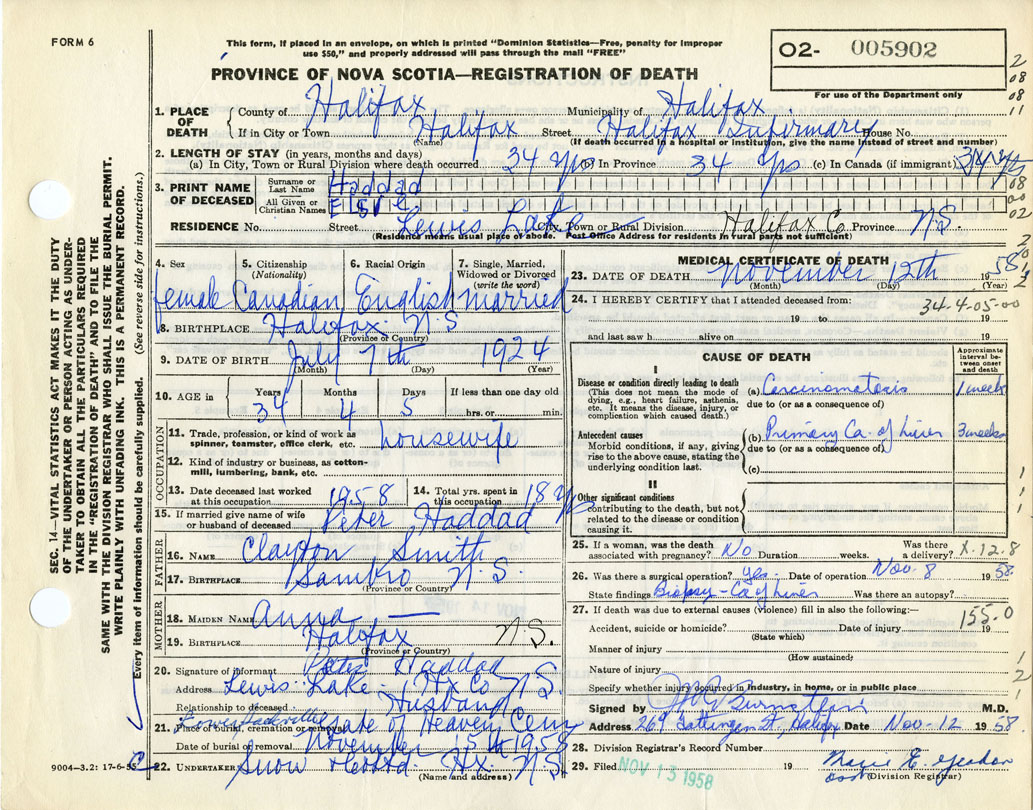 FORM 6
This form, if placed in an envelope, on which is printed "Dominion Statistics—Free, penalty for improper
use $50," and properly addressed will pass through the mail "FREE"
O2- 005902
For use of the Department only
PROVINCE OF NOVA SCOTIA—REGISTRATION OF DEATH
1. PLACE OF DEATH County of Halifax Municipality of Halifax
If in City or Town Halifax Street Halifax Infirmary House No.
(Name) (If death occurred in a hospital or institution, give the name instead of street and number)
2. LENGTH OF STAY (in years, months and days)
(a) In City, Town or Rural Division where death occurred 34 yrs (b) In Province 34 yrs (c) In Canada (if immigrant) 34 yrs
3. PRINT NAME OF DECEASED Surname or Last Name Haddad
All Given or Christian Names
RESIDENCE No. Street Lewis Lake City, Town or Rural Division Halifax Co. Province N S
(Residence means usual place of abode. Post Office Address for residents in rural parts not sufficient)
4. Sex 5. Citizenship (Nationality) 6. Racial Origin 7. Single, Married, Widowed or Divorced (write the word)
female Canadian English married
8. BIRTHPLACE Halifax N S
(Province or Country)
9. DATE OF BIRTH July 7th 1924
(Month) (Day) (Year)
10. AGE in Years Months Days If less than one day old
34 4 5 hrs. or min.
OCCUPATION
11. Trade, profession, or kind of work as spinner, teamster, office clerk, etc. housewife
12. Kind of industry or business, as cotton-mill, lumbering, bank, etc.
13. Date deceased last worked at this occupation 1958 14. Total yrs. spent in this occupation 18 yrs
15. If married give name of wife or husband of deceased Peter Haddad
FATHER
16. NAME Clayton Smith
17. BIRTHPLACE Sambro N. S.
(Province or Country)
MOTHER
18. MAIDEN NAME Anna —
19. BIRTHPLACE Halifax N. S.
(Province or Country)
20. Signature of informant Peter Haddad
Address Lewis Lake Hx Co N. S.
Relationship to deceased Husband
21. Place of burial, cremation or removal Lower Sackville Gate of Heaven Cem
Date of burial or removal November 1958
22. UNDERTAKER Snow Hx. N S
(Name and address)
MEDICAL CERTIFICATE OF DEATH
23. DATE OF DEATH November 12th 1958
(Month) (Day) (Year)
24. I HEREBY CERTIFY that I attended deceased from: 34-4-05-00
19 to 19
and last saw h alive on 19
CAUSE OF DEATH
Approximate interval between onset and death
I
Disease or condition directly leading to death
(This does not mean the mode of dying, e.g., heart failure, asthenia, etc. It means the disease, injury, or complication which caused death.)
(a) Carcinomatosis 1 week
due to (or as a consequence of)
Antecedent causes
Morbid conditions, if any, giving rise to the above cause, stating the underlying condition last.
(b) Primary Ca. of Liver 3 weeks
due to (or as a consequence of)
(c)
II
Other significant conditions
contributing to the death, but not related to the disease or condition causing it.
25. If a woman, was the death associated with pregnancy? No Duration weeks. Was there a delivery? X-12-8
26. Was there a surgical operation? yes. Date of operation Nov. 8 1958
State findings Biopsy - Ca of Liver Was there an autopsy?
27. If death was due to external causes (violence) fill in also the following:—
155.0
Accident, suicide or homicide? Date of injury 19
(State which)
Manner of injury
(How sustained)
Nature of injury
Specify whether injury occurred in industry, in home, or in public place
Signed by Burnstein M.D.
Address 269 Gottingen St, Halifax Date Nov-12 1958
28. Division Registrar's Record Number
29. Filed NOV 13 1958 19
(Division Registrar)
SEC. 14—VITAL STATISTICS ACT MAKES IT THE DUTY
OF THE UNDERTAKER OR PERSON ACTING AS UNDERTAKER TO OBTAIN ALL THE PARTICULARS REQUIRED
IN THE "REGISTRATION OF DEATH" AND TO FILE THE
SAME WITH THE DIVISION REGISTRAR WHO SHALL ISSUE THE BURIAL PERMIT.
WRITE PLAINLY WITH UNFADING INK. THIS IS A PERMANENT RECORD.
Every item of information should be carefully supplied. (See reverse side for instructions.)
9004—3.2: 17-6-55